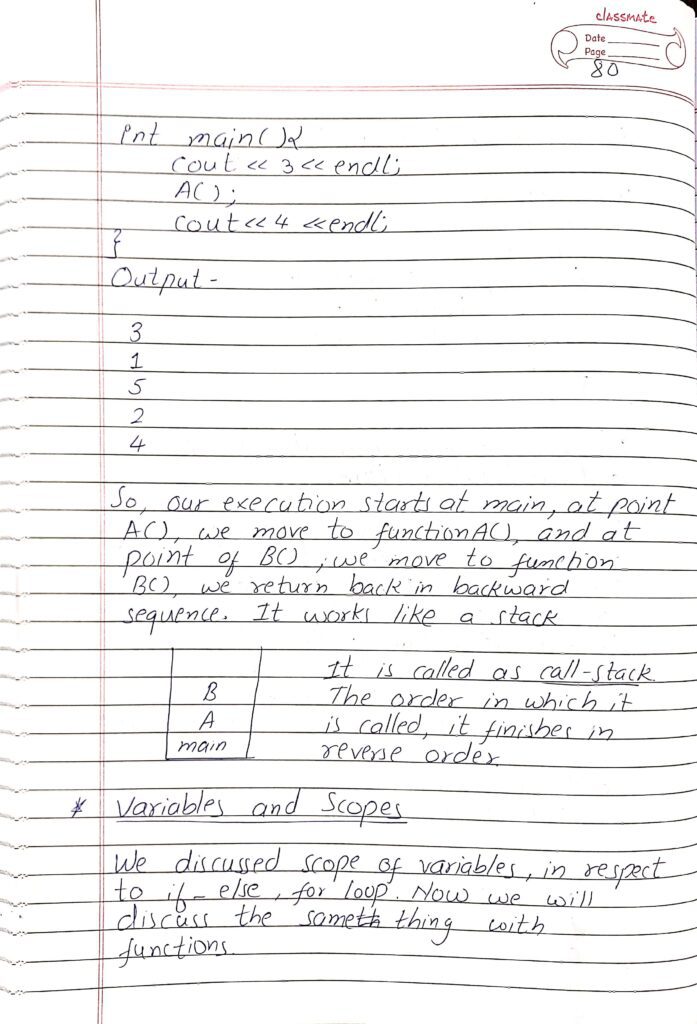 classmate
Date
Page
80
int main(){
cout << 3 << endl;
A();
cout << 4 << endl;
}
Output -
3
1
5
2
4
So, our execution starts at main, at point
A(), we move to function A(), and at
point of B() , we move to function
B(), we return back in backward
sequence. It works like a stack
B
A
main
It is called as call-stack.
The order in which it
is called, it finishes in
reverse order
* Variables and Scopes
We discussed scope of variables, in respect
to if-else, for loop. Now we will
discuss the same thing with
functions.